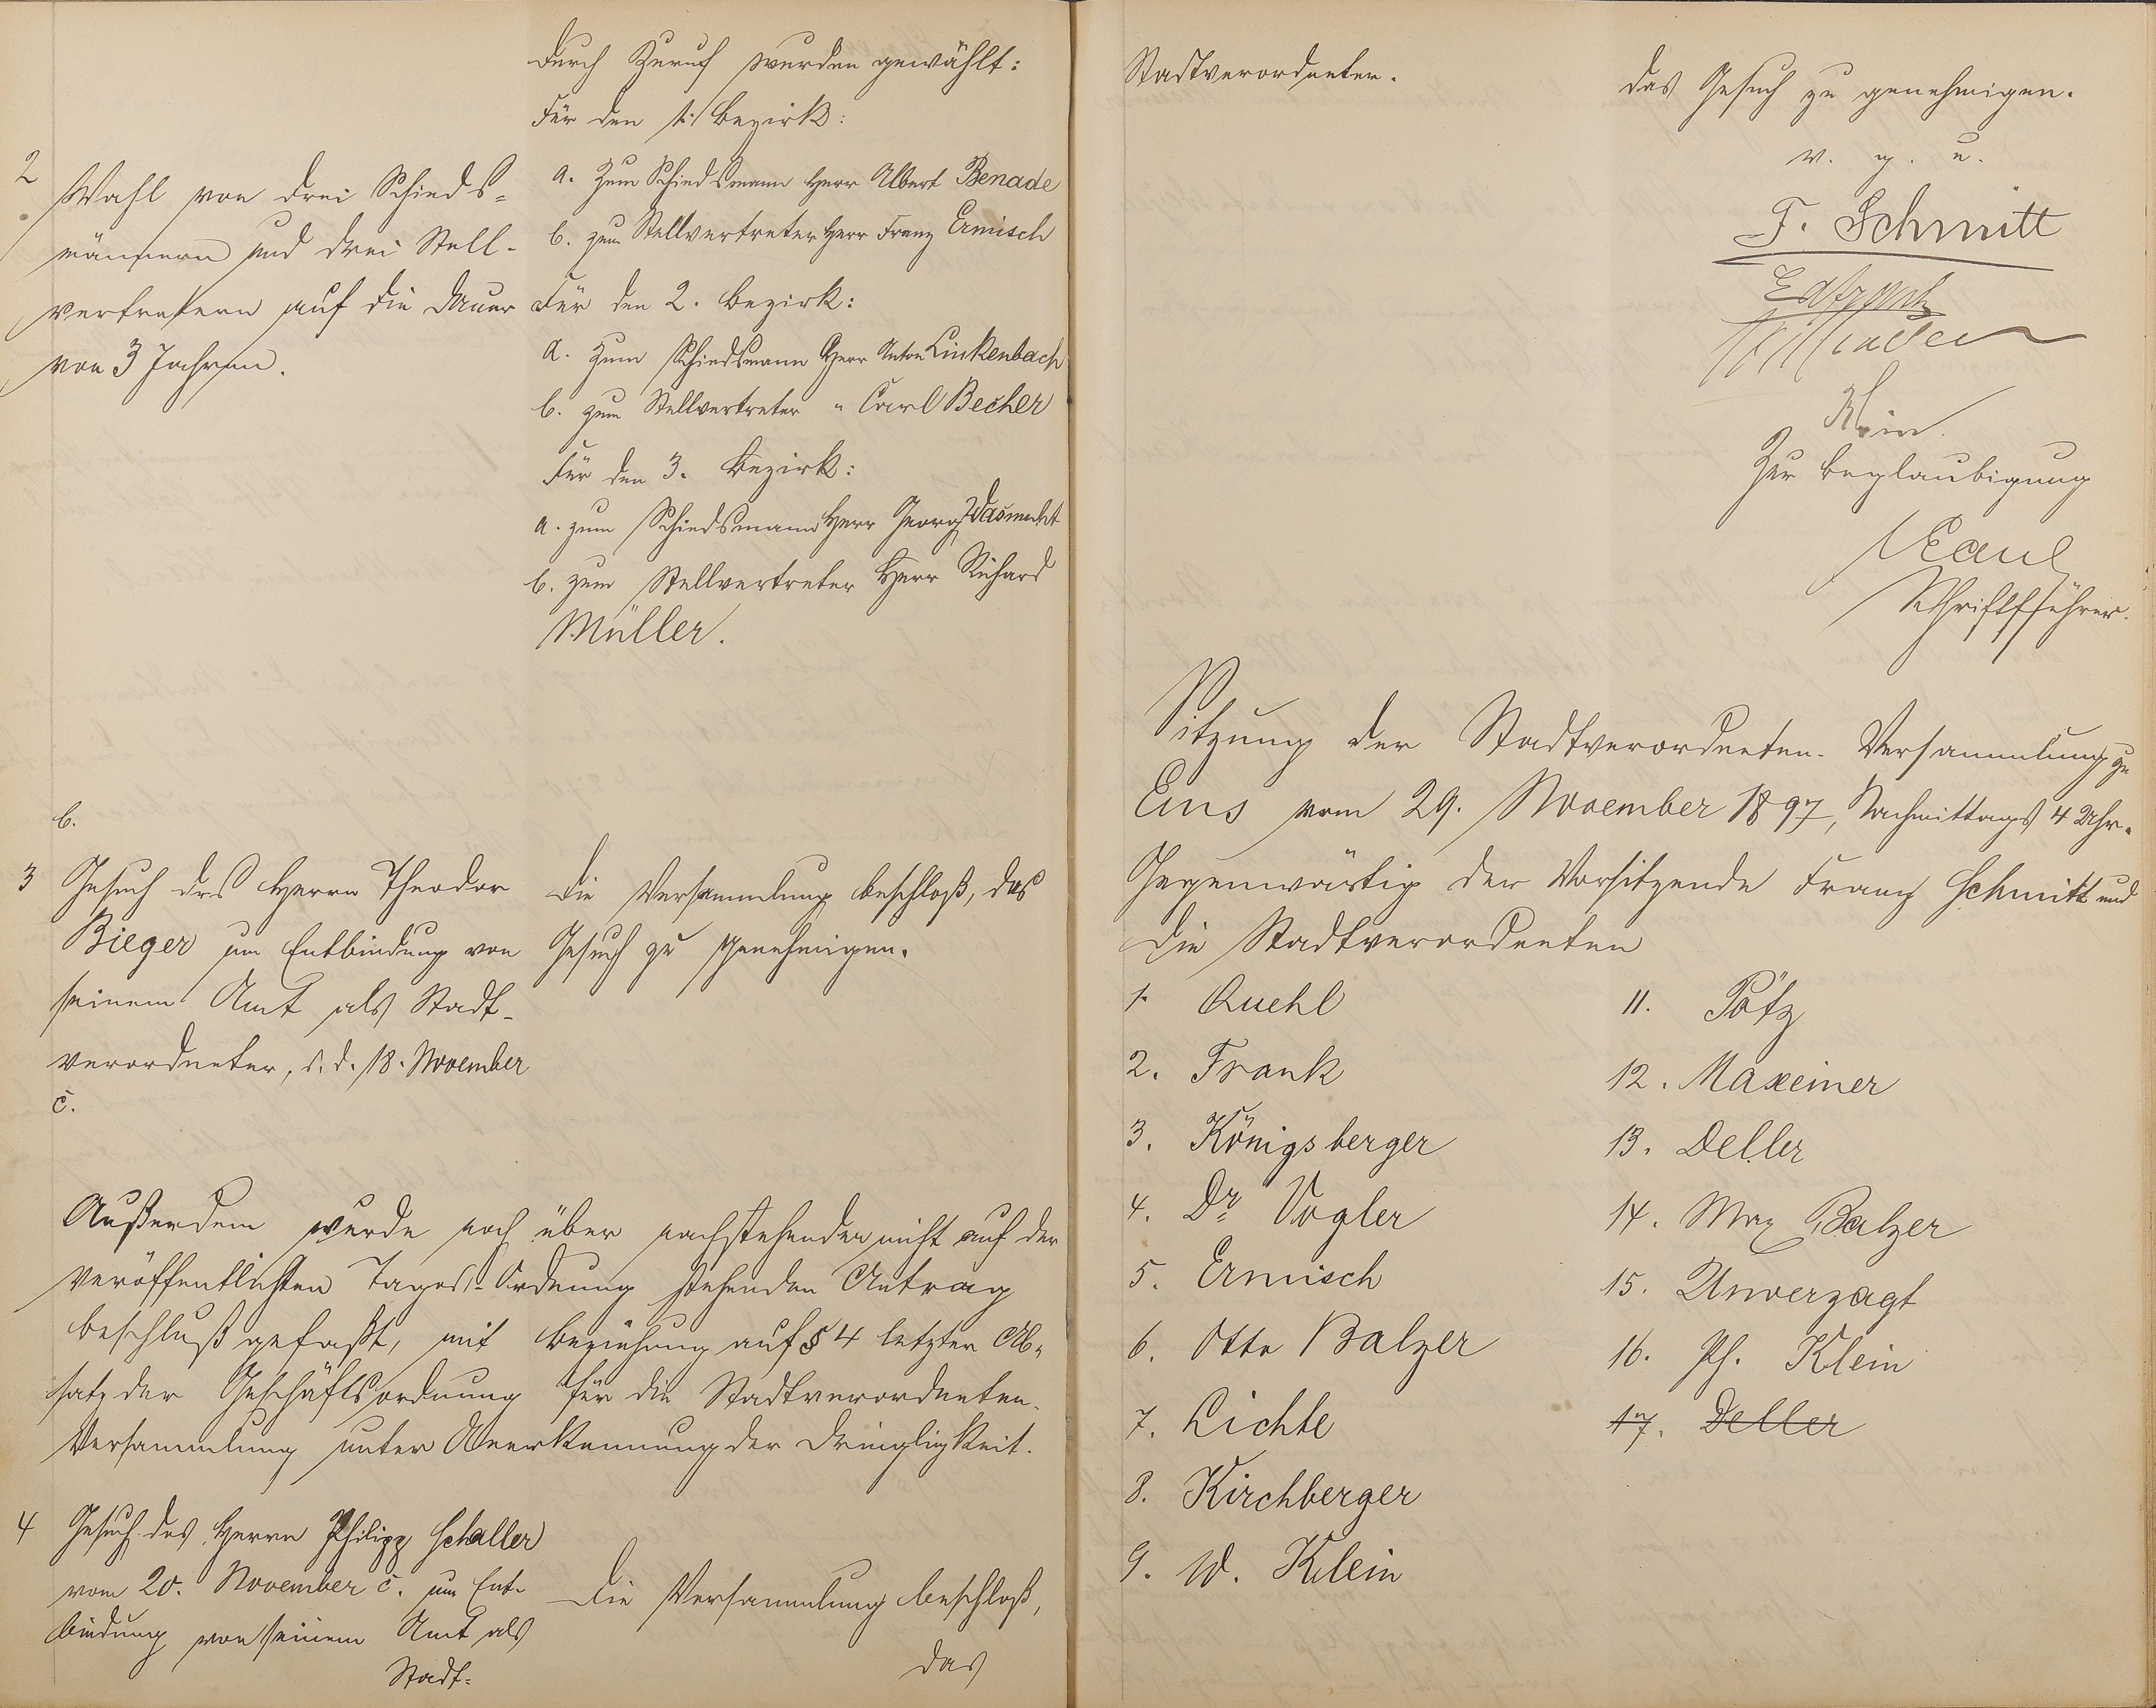 2
Wahl von drei Schieds-
männern und drei Stell-
vertretern auf die Dauer
von 3 Jahren.
Durch Zuruf wurden gewählt:
Für den 1. Bezirk:
a. Zum Schiedsmann Herr Albert Benade
b. zum Stellvertreter Herr Franz Ermisch
Für den 2. Bezirk:
a. Zum Schiedsmann Herr Anton Linkenbach
b. zum Stellvertreter " Carl Becher
Für den 3. Bezirk:
a. zum Schiedsmann Herr Georg
b. zum Stellvertreter Herr Richard
Müller.
b.
3 Gesuch des Herrn Theodor
Bieger um Entbindung von
seinem Amt als Stadt-
verordneter, d. d. 18. November
c.
Die Versammlung beschloß, das
Gesuch zu genehmigen.
Außerdem wurde noch über nachstehenden nicht auf der
veröffentlichten Tages-Ordnung stehenden Antrag
beschluß gefaßt, mit Beziehung auf § 4 letzter Ab-
satz der Geschäftsordnung für die Stadtverordneten-
Versammlung unter Anerkennung der Dringlichkeit.
4 Gesuch des Herrn Philipp Schaller
vom 20. November c. um Ent-
bindung von seinem Amt als
Stadt-
Die Versammlung beschloß,
das
Stadtverordneter.
das Gesuch zu genehmigen.
v. g. u.
F. Schmitt
Klein.
Zur Beglaubigung
Kaul
Schriftführer.
Sitzung der Stadtverordneten-Versammlung zu
Ems vom 29. November 1897, Nachmittags 4 Uhr.
Gegenwärtig der Vorsitzende Franz Schmitt und
die Stadtverordneten
1. Quehl
2. Frank
3. Königsberger
4. Dr Vogler
5. Ermisch
6. Otto Balzer
7. Lichte
8. Kirchberger
9. W. Klein
11. Pötz
12. Maxeiner
13. Deller
14. Max Balzer
15. Unverzagt
16. Ph. Klein
17. Deller